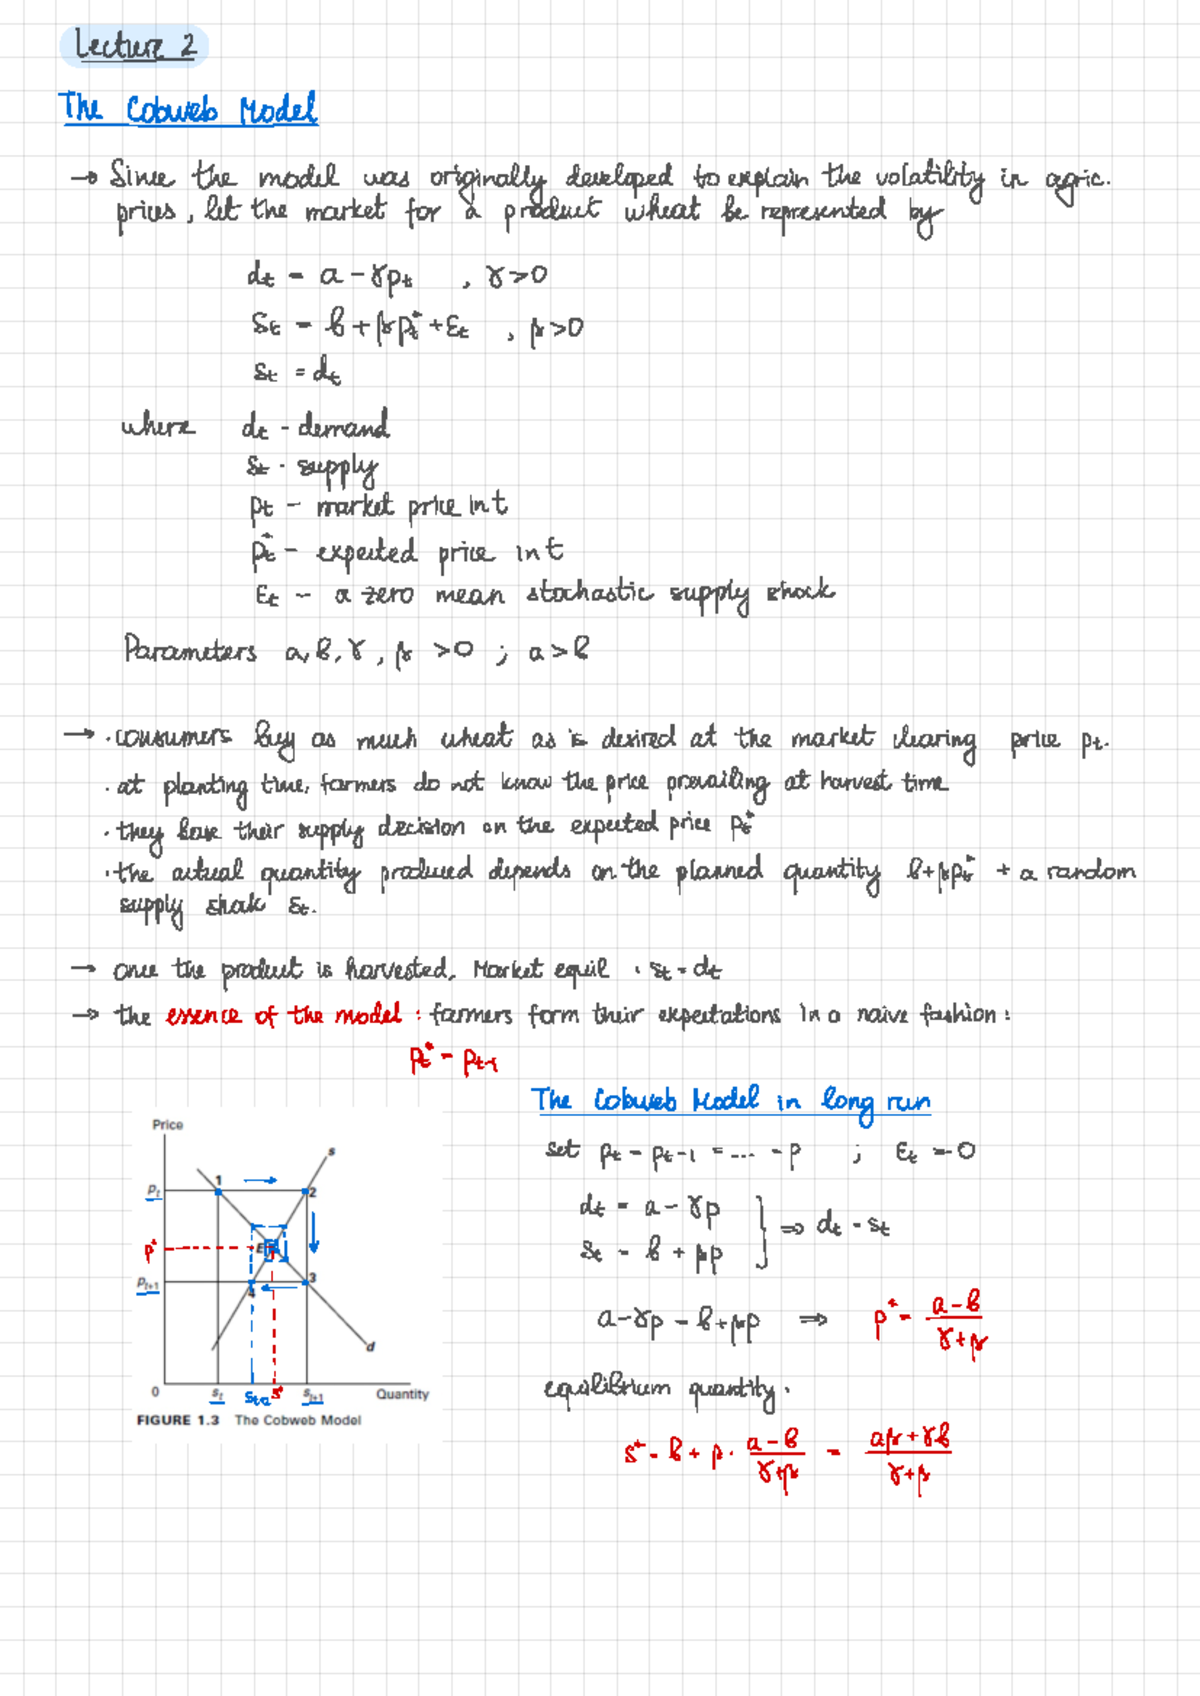 Lecture 2
The Cobweb Model
→ Since the model was originally developed to explain the volatility in agric.
prices, let the market for a product wheat be represented by
dt = a - γpt , γ>0
St = b + βpt* + εt , β>0
St = dt
where dt - demand
St - supply
pt - market price in t
pt* - expected price in t
εt - a zero mean stochastic supply shock
Parameters a, b, γ, β >0 ; a>b
→ · consumers buy as much wheat as is desired at the market clearing price pt.
· at planting time, farmers do not know the price prevailing at harvest time
· they base their supply decision on the expected price pt*
· the actual quantity produced depends on the planned quantity b+βpt* + a random
supply shock εt.
→ once the product is harvested, Market equil : st = dt
→ the essence of the model : farmers form their expectations in a naive fashion :
pt* = pt-1
The Cobweb Model in long run
set pt = pt-1 = ... = p ; εt = 0
dt = a - γp
st = b + βp
⇒ dt = st
a - γp = b + βp ⇒ p* = (a - b)/(γ + β)
equilibrium quantity.
s* = b + β · (a - b)/(γ + β) = (aβ + γb)/(γ + β)
Price
s
1
2
pt
p*
E
pt+1
3
4
d
0
st
st+2
s*
st+1
Quantity
FIGURE 1.3 The Cobweb Model